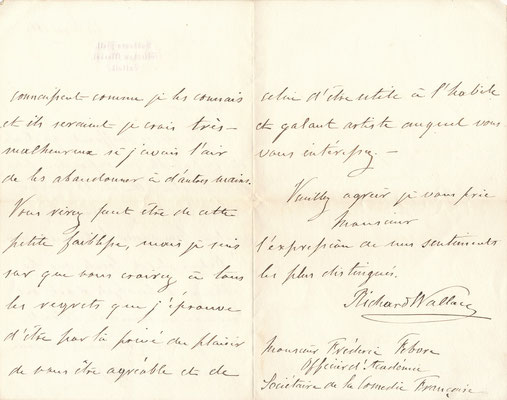 connaissent comme je les connais
et ils seraient je crois très-
malheureux si j'avais l'air
de les abandonner à d'autres mains.
Vous rirez peut être de cette
petite faiblesse, mais je suis
sur que vous croirez à tous
les regrets que j'éprouve
d'être par là privé du plaisir
de vous être agréable et de
celui d'être utile à l'habile
et galant artiste auquel vous
vous intéressez. —
Veuillez agréer je vous prie
Monsieur
l'expression de mes sentiments
les plus distingués.
Richard Wallace
Monsieur Fréderic Febvre
Officier d'Academie
Sociétaire de la Comedie Française